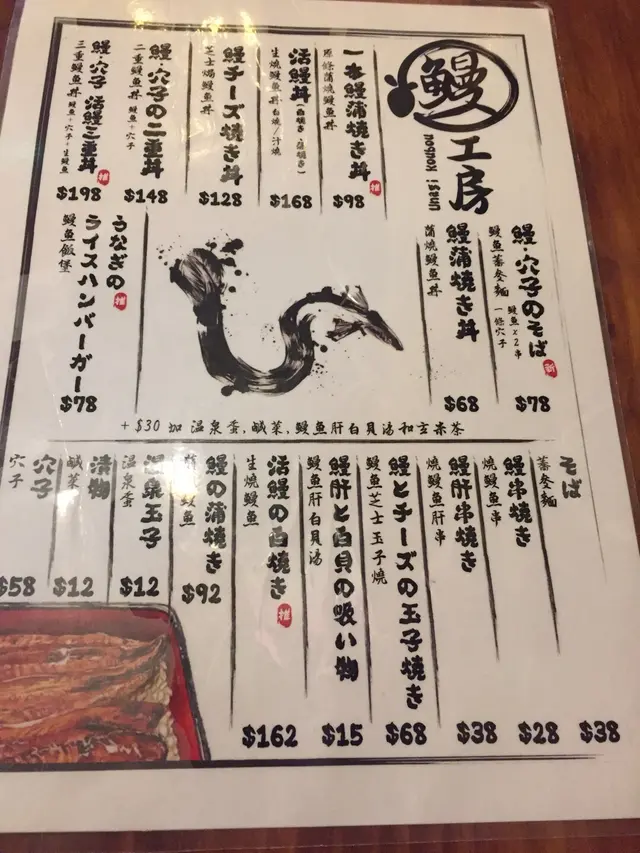 鰻
工房
unagi koubou
一本鰻蒲焼き丼
原條蒲燒鰻魚丼
推
$98
活鰻丼(白焼き・蒲焼き)
生燒鰻魚丼 白燒/汁燒
$168
鰻チーズ焼き丼
芝士焗鰻魚丼
$128
鰻・穴子の二重丼
二重鰻魚丼 鰻魚+穴子
$148
鰻・穴子 活鰻三重丼
三重鰻魚丼 鰻魚+穴子+生鰻魚
推
$198
鰻・穴子のそば
鰻魚蕎麥麵 鰻魚x2串 一條穴子
新
$78
鰻蒲焼き丼
蒲燒鰻魚丼
$68
うなぎの
ライスハンバーガー
鰻魚飯堡
推
$78
+$30 加 溫泉蛋,鹹菜,鰻魚肝白貝湯和玄米茶
そば
蕎麥麵
$38
鰻串焼き
燒鰻魚串
$28
鰻肝串焼き
燒鰻魚肝串
$38
鰻とチーズの玉子焼き
鰻魚芝士玉子燒
$68
鰻肝と白貝の吸い物
鰻魚肝白貝湯
$15
活鰻の白焼き
生燒鰻魚
推
$162
鰻の蒲焼き
鰻魚
$92
温泉玉子
溫泉蛋
$12
漬物
鹹菜
$12
穴子
穴子
$58